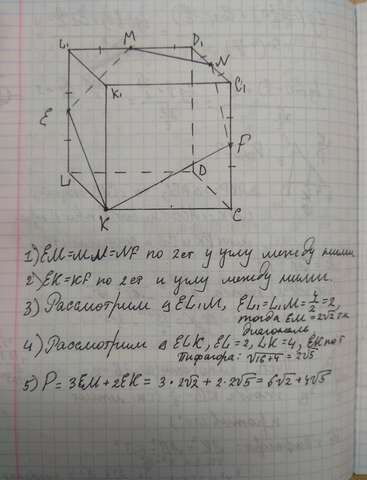 L₁ M D₁
N
K₁ C₁
E
F
L D
K C
1) EM=MN=NF по 2ст и углу между ними
2) EK=KF по 2ст и углу между ними.
3) Рассмотрим △ EL₁M, EL₁=L₁M=4/2=2,
тогда EM=2√2 т.к
диагональ
4) Рассмотрим △ ELK, EL=2, LK=4, EK по т
Пифагора: √16+4 = 2√5
5) P= 3EM+2EK= 3·2√2 + 2·2√5 = 6√2 + 4√5